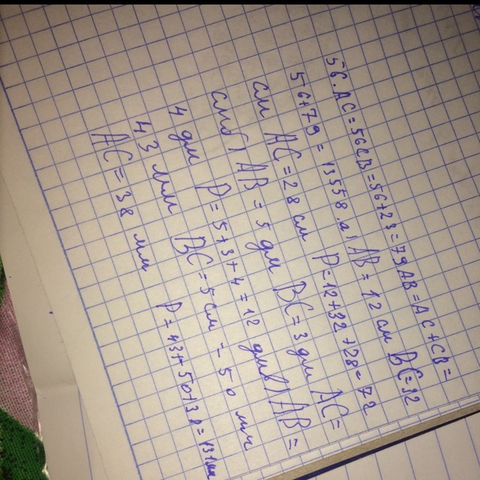 56. AC = 56 CB = 56 + 23 = 79 AB = AC + CB =
56 + 79 = 135 58. а) AB = 12 см BC = 32
см AC = 28 см P = 12 + 32 + 28 = 72
см б) AB = 5 дм BC = 3 дм AC =
4 дм P = 5 + 3 + 4 = 12 дм в) AB =
43 мм BC = 5 см = 50 мм
AC = 38 мм P = 43 + 50 + 38 = 131 мм